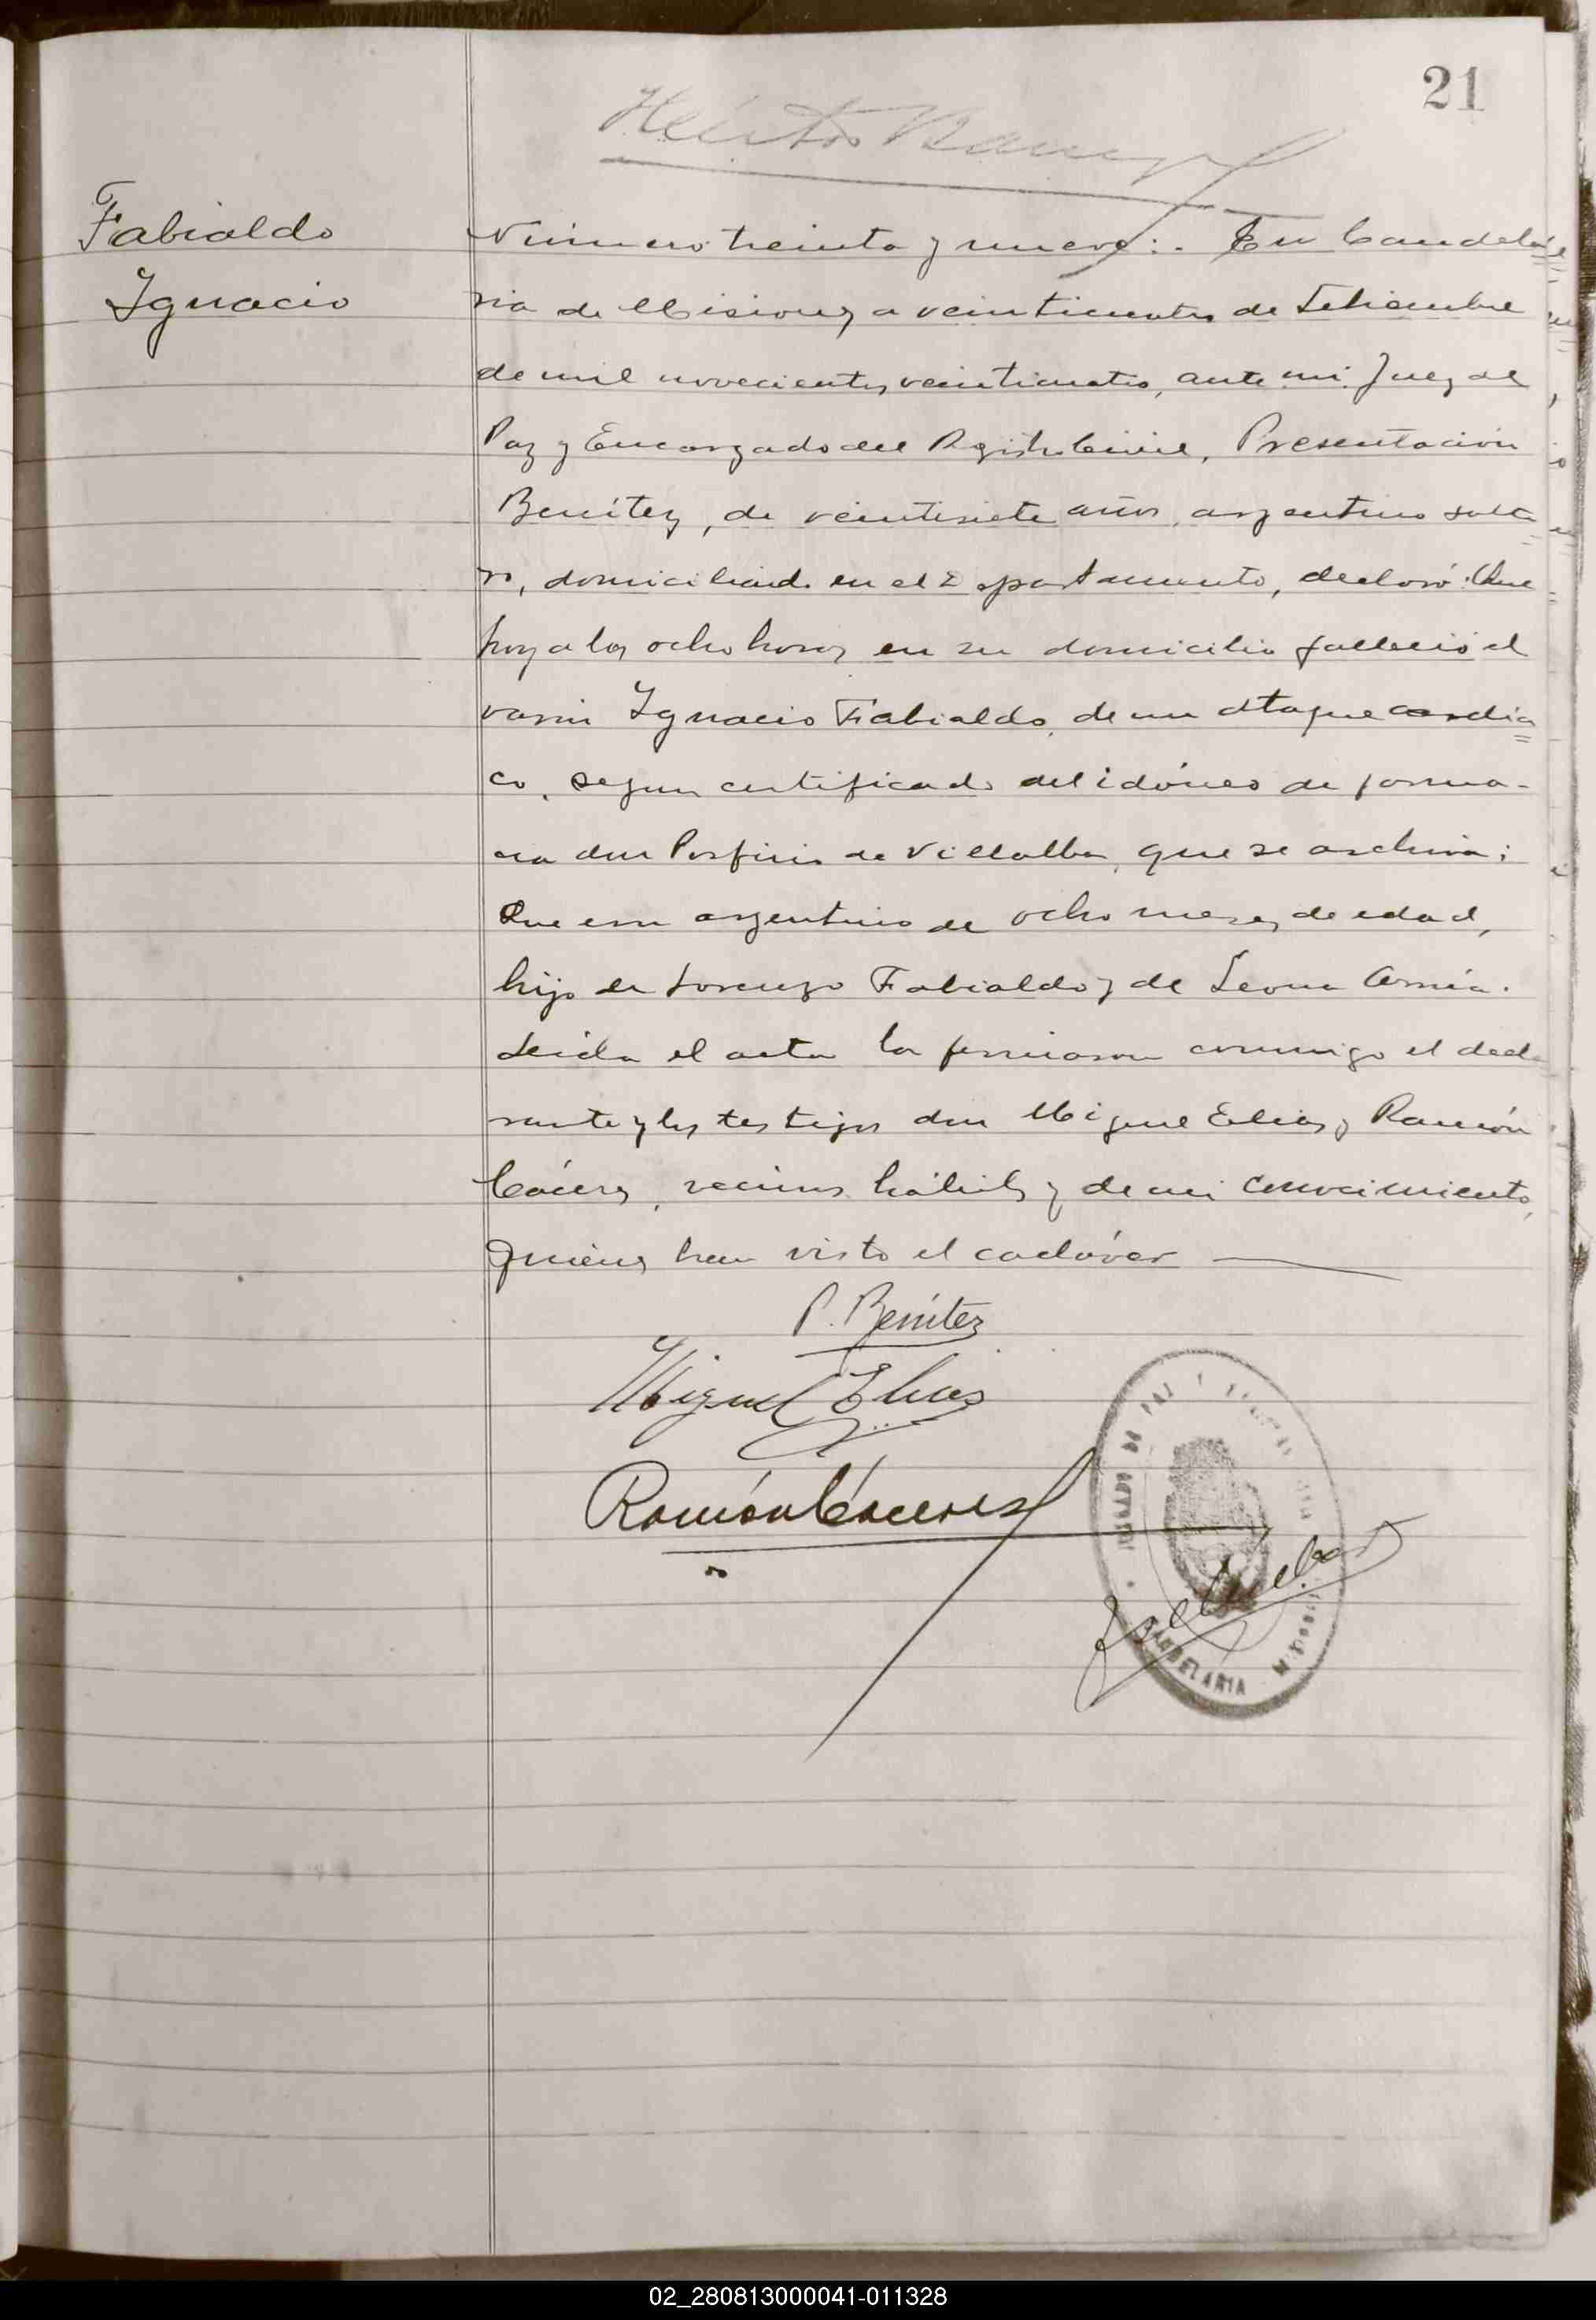 21
Fabialdo
Ignacio
Número treinta y nueve:. En Candela
ria de Misiones a veinticuatro de Setiembre
de mil novecientos veinticuatro, ante mi Juez de
Paz y Encargado del Registro Civil, Presentación
Benítez, de veintisiete años, argentino solte
ro, domiciliado en el 2 apartamento, declaró: Que
hoy a las ocho horas en su domicilio falleció el
varón Ignacio Fabialdo, de un ataque cardia
co, segun certificado del idóneo de farma-
cia don Porfirio de Villalba, que se archiva;
Que era argentino de ocho meses de edad,
hijo de Lorenzo Fabialdo y de Leona
Leida el acta la firmaron conmigo el decla
rante y los testigos don Miguel Elias y Ramón
Cáceres, vecinos hábiles y de mi conocimiento,
quienes han visto el cadáver
P. Benítez
Miguel Elias
Ramón Cáceres
JUZGADO DE PAZ Y
CANDELARIA MISIONES
02_280813000041-011328